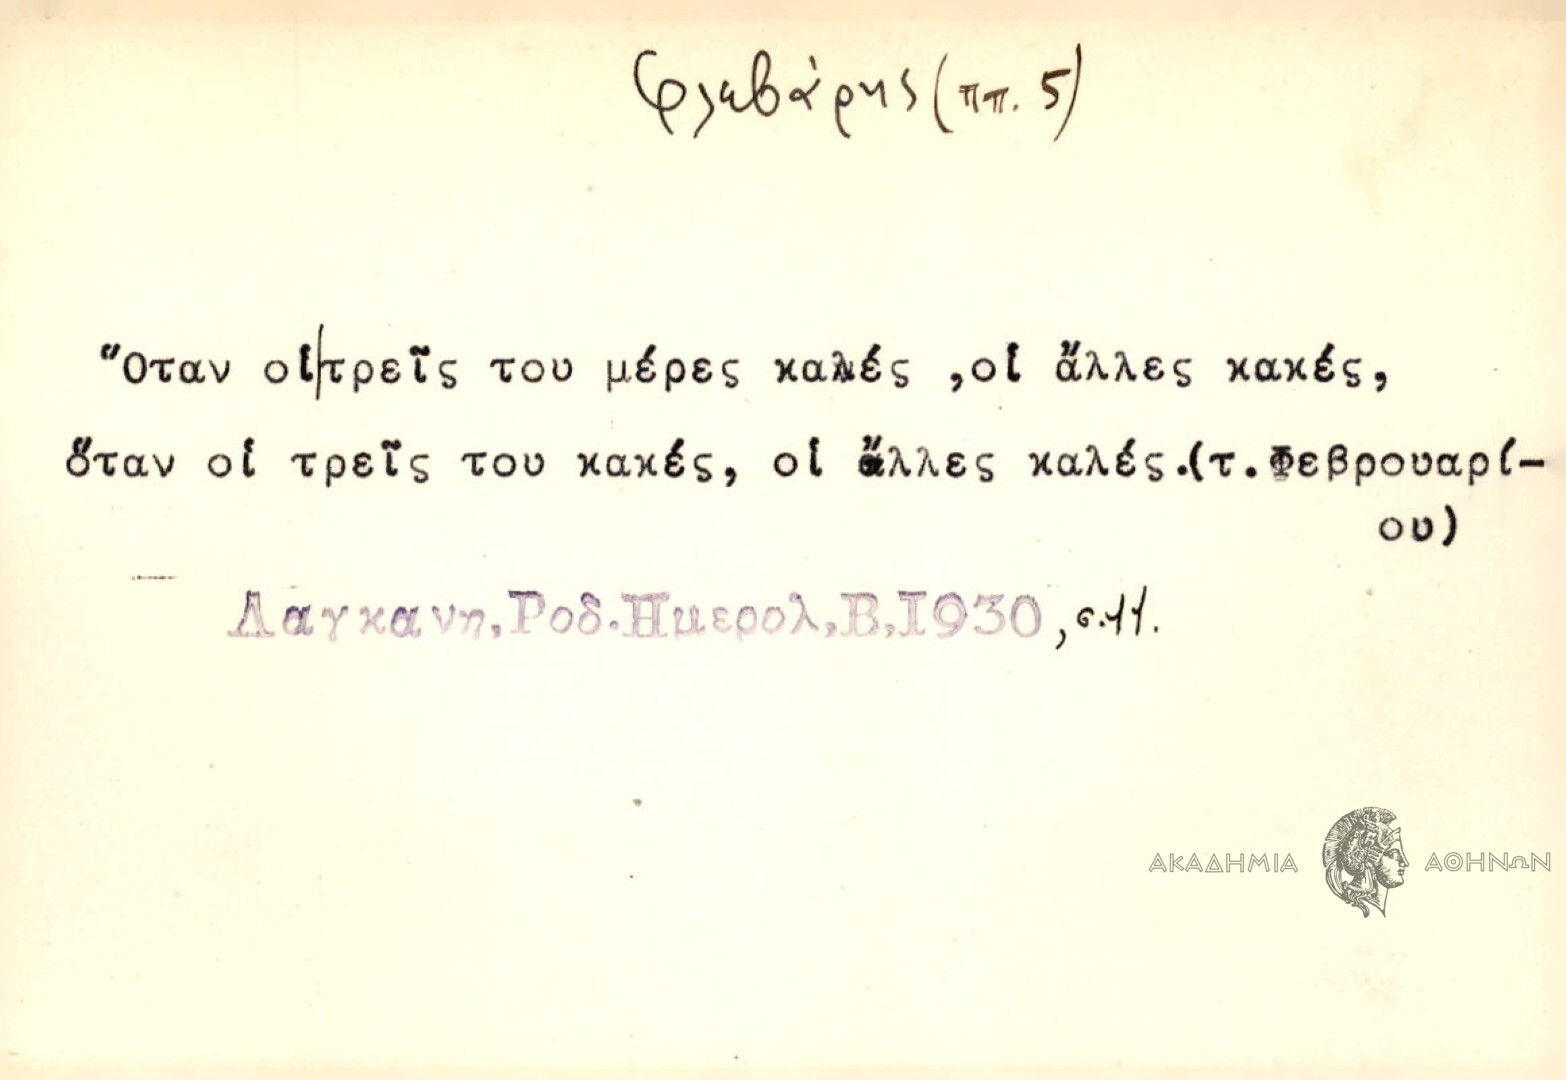 Φλεβάρης (ππ. 5)
Ὅταν οἱ τρεῖς του μέρες καλές ,οἱ ἄλλες κακές,
ὅταν οἱ τρεῖς του κακές, οἱ ἄλλες καλές.(τ.Φεβρουαρί-
ου)
Λαγκανη,Ροδ.Ημερολ,Β,1930, σ.11.
ΑΚΑΔΗΜΙΑ ΑΘΗΝΩΝ